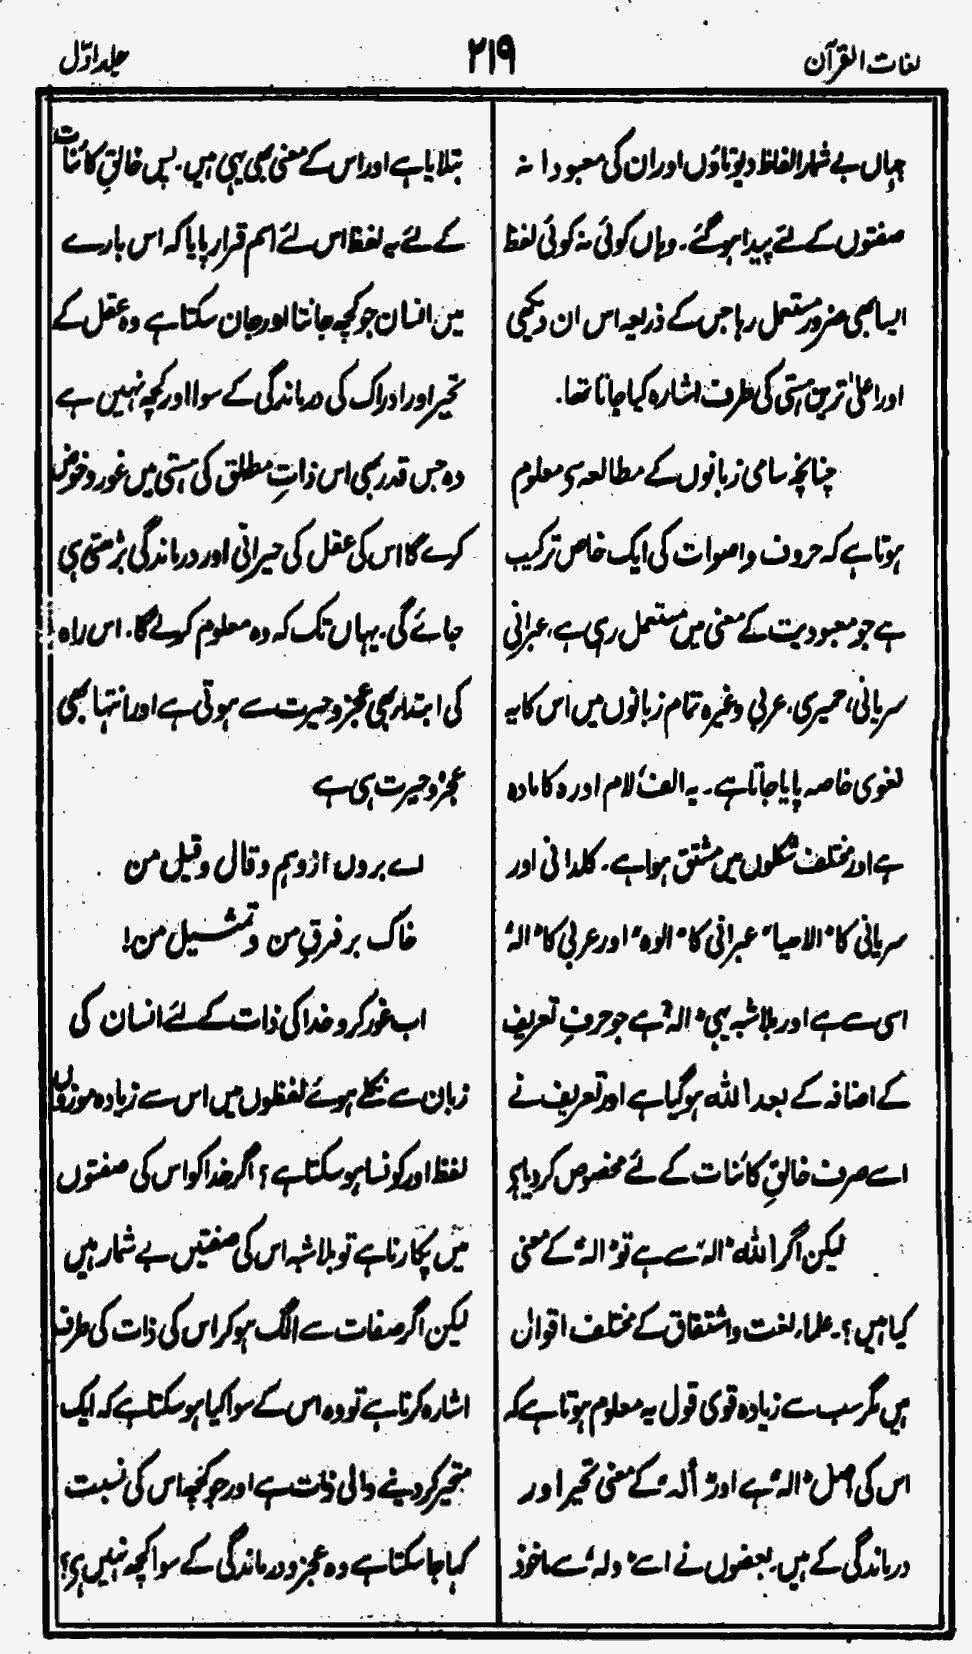 لغات القرآن
۲۱۹
جلد اوّل
جہاں بے شمار الفاظ دیوتاؤں اور ان کی معبودانہ
صفتوں کے لئے پیدا ہو گئے۔ وہاں کوئی نہ کوئی لفظ
ایسا بھی ضرور مستعمل رہا جس کے ذریعہ اس ان دیکھی
اور اعلیٰ ترین ہستی کی طرف اشارہ کیا جاتا تھا۔
چنانچہ سامی زبانوں کے مطالعہ سے معلوم
ہوتا ہے کہ حروف و اصوات کی ایک خاص ترکیب
ہے جو معبودیت کے معنی میں مستعمل رہی ہے، عبرانی
سریانی، حمیری، عربی وغیرہ تمام زبانوں میں اس کا یہ
لغوی خاصہ پایا جاتا ہے۔ یہ الف، لام اور ہ کا مادہ
ہے اور مختلف شکلوں میں مشتق ہوا ہے۔ کلدانی اور
سریانی کا "الاھیا" عبرانی کا "الوہ" اور عربی کا "الٰہ"
اسی سے ہے اور بلاشبہ یہی "الٰہ" ہے جو حرفِ تعریف
کے اضافہ کے بعد اللہ ہو گیا ہے اور تعریف نے
اسے صرف خالقِ کائنات کے لئے مخصوص کر دیا ہے
لیکن اگر "اللہ" "الٰہ" سے ہے تو "الٰہ" کے معنی
کیا ہیں؟۔ علماء لغت و اشتقاق کے مختلف اقوال
ہیں مگر سب سے زیادہ قوی قول یہ معلوم ہوتا ہے کہ
اس کی اصل "الٰہ" ہے اور "ألہ" کے معنی تحیر اور
درماندگی کے ہیں۔ بعضوں نے اسے "ولہ" سے ماخوذ
بتلایا ہے اور اس کے معنی بھی یہی ہیں۔ پس خالقِ کائنات
کے لئے یہ لفظ اس لئے اسم قرار پایا کہ اس بارے
میں انسان جو کچھ جانتا اور جان سکتا ہے وہ عقل کے
تحیر اور ادراک کی درماندگی کے سوا اور کچھ نہیں ہے
وہ جس قدر بھی اس ذاتِ مطلق کی ہستی میں غور و خوض
کرے گا اس کی عقل کی حیرانی اور درماندگی بڑھتی ہی
جائے گی۔ یہاں تک کہ وہ معلوم کر لے گا۔ اس راہ
کی ابتداء بھی عجز و حیرت سے ہوتی ہے اور انتہا بھی
عجز و حیرت ہی ہے
اے بروں از وہم و قال و قیل من
خاک بر فرقِ من و تمثیل من!
اب غور کرو خدا کی ذات کے لئے انسان کی
زبان سے نکلے ہوئے لفظوں میں اس سے زیادہ موزوں
لفظ اور کونسا ہو سکتا ہے؟ اگر خدا کو اس کی صفتوں
میں پکارنا ہے تو بلاشبہ اس کی صفتیں بے شمار ہیں
لیکن اگر صفات سے الگ ہو کر اس کی ذات کی طرف
اشارہ کرنا ہے تو وہ اس کے سوا کیا ہو سکتا ہے کہ ایک
متحیر کر دینے والی ذات ہے اور جو کچھ اس کی نسبت
کہا جا سکتا ہے وہ عجز و درماندگی کے سوا کچھ نہیں ہے؟